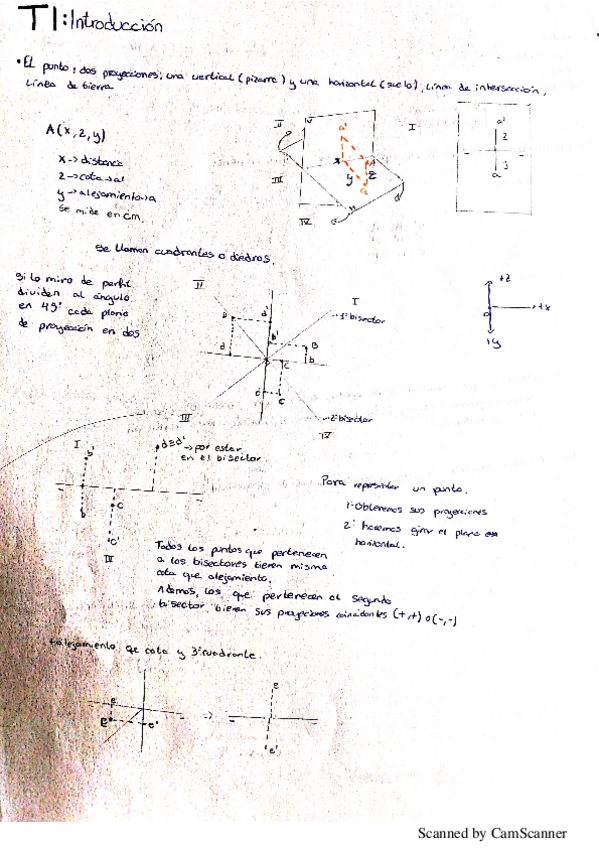 T1: Introducción
• El punto, dos proyecciones, una vertical (pizarra) y una horizontal (suelo), línea de intersección,
línea de tierra
A (x, z, y)
x -> distancia
z -> cota -> a'
y -> alejamiento -> a
se mide en cm.
II
I
III
IV
a'
x
y
z
a
a'
2
3
a
se llaman cuadrantes o diedros.
Si lo miro de perfil
dividen al ángulo
en 45º cada plano
de proyección en dos
II
I
1º bisector
d'
d
b'
B
b
c
c'
C
III
2º bisector
IV
+z
+x
o
+y
I
b'
b
d≡d' -> por estar
en el bisector.
c
c'
IV
Para representar un punto.
1º Obtenemos sus proyecciones
2º hacemos girar el plano
horizontal.
Todos los puntos que pertenecen
a los bisectores tienen misma
cota que alejamiento.
Además, los que pertenecen al segundo
bisector tienen sus proyecciones coincidentes (+,+) o (-,-)
+ alejamiento que cota y 3º cuadrante.
e
E
e'
->
e
e'
Scanned by CamScanner